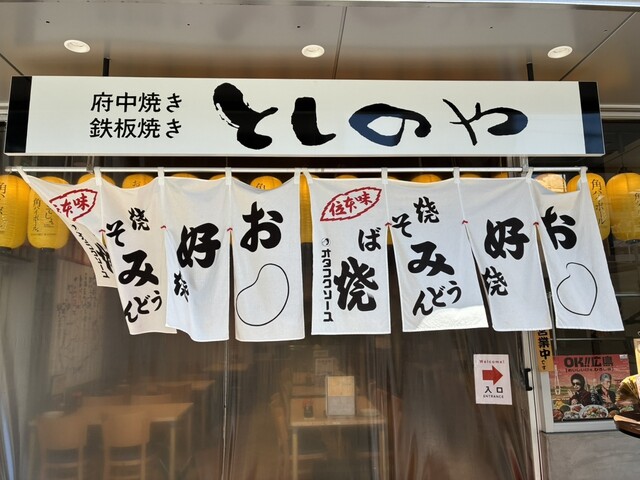 府中焼き
鉄板焼き
としのや
お好み焼
焼そば
焼うどん
オタフクソース
お好み焼
焼そ
焼うどん
オタフクソース
営業中
Welcome!
入口
ENTRANCE
OK!!広島